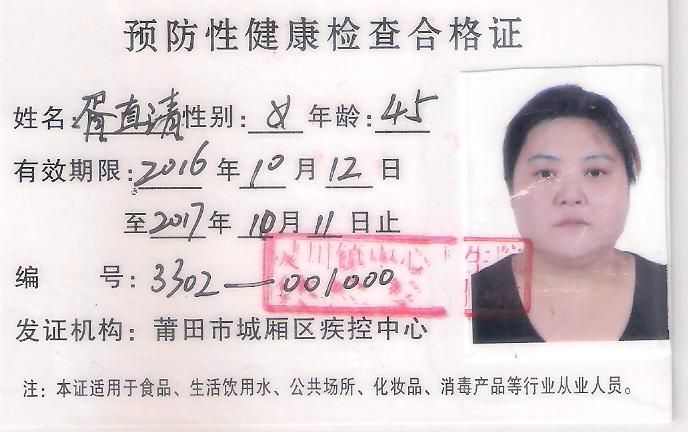 预防性健康检查合格证
姓名:直清 性别:女 年龄:45
有效期限:2016年10月12日
至2017年10月11日止
编 号:3302—001000
灵川镇中心 生院
发证机构:莆田市城厢区疾控中心
注:本证适用于食品、生活饮用水、公共场所、化妆品、消毒产品等行业从业人员。